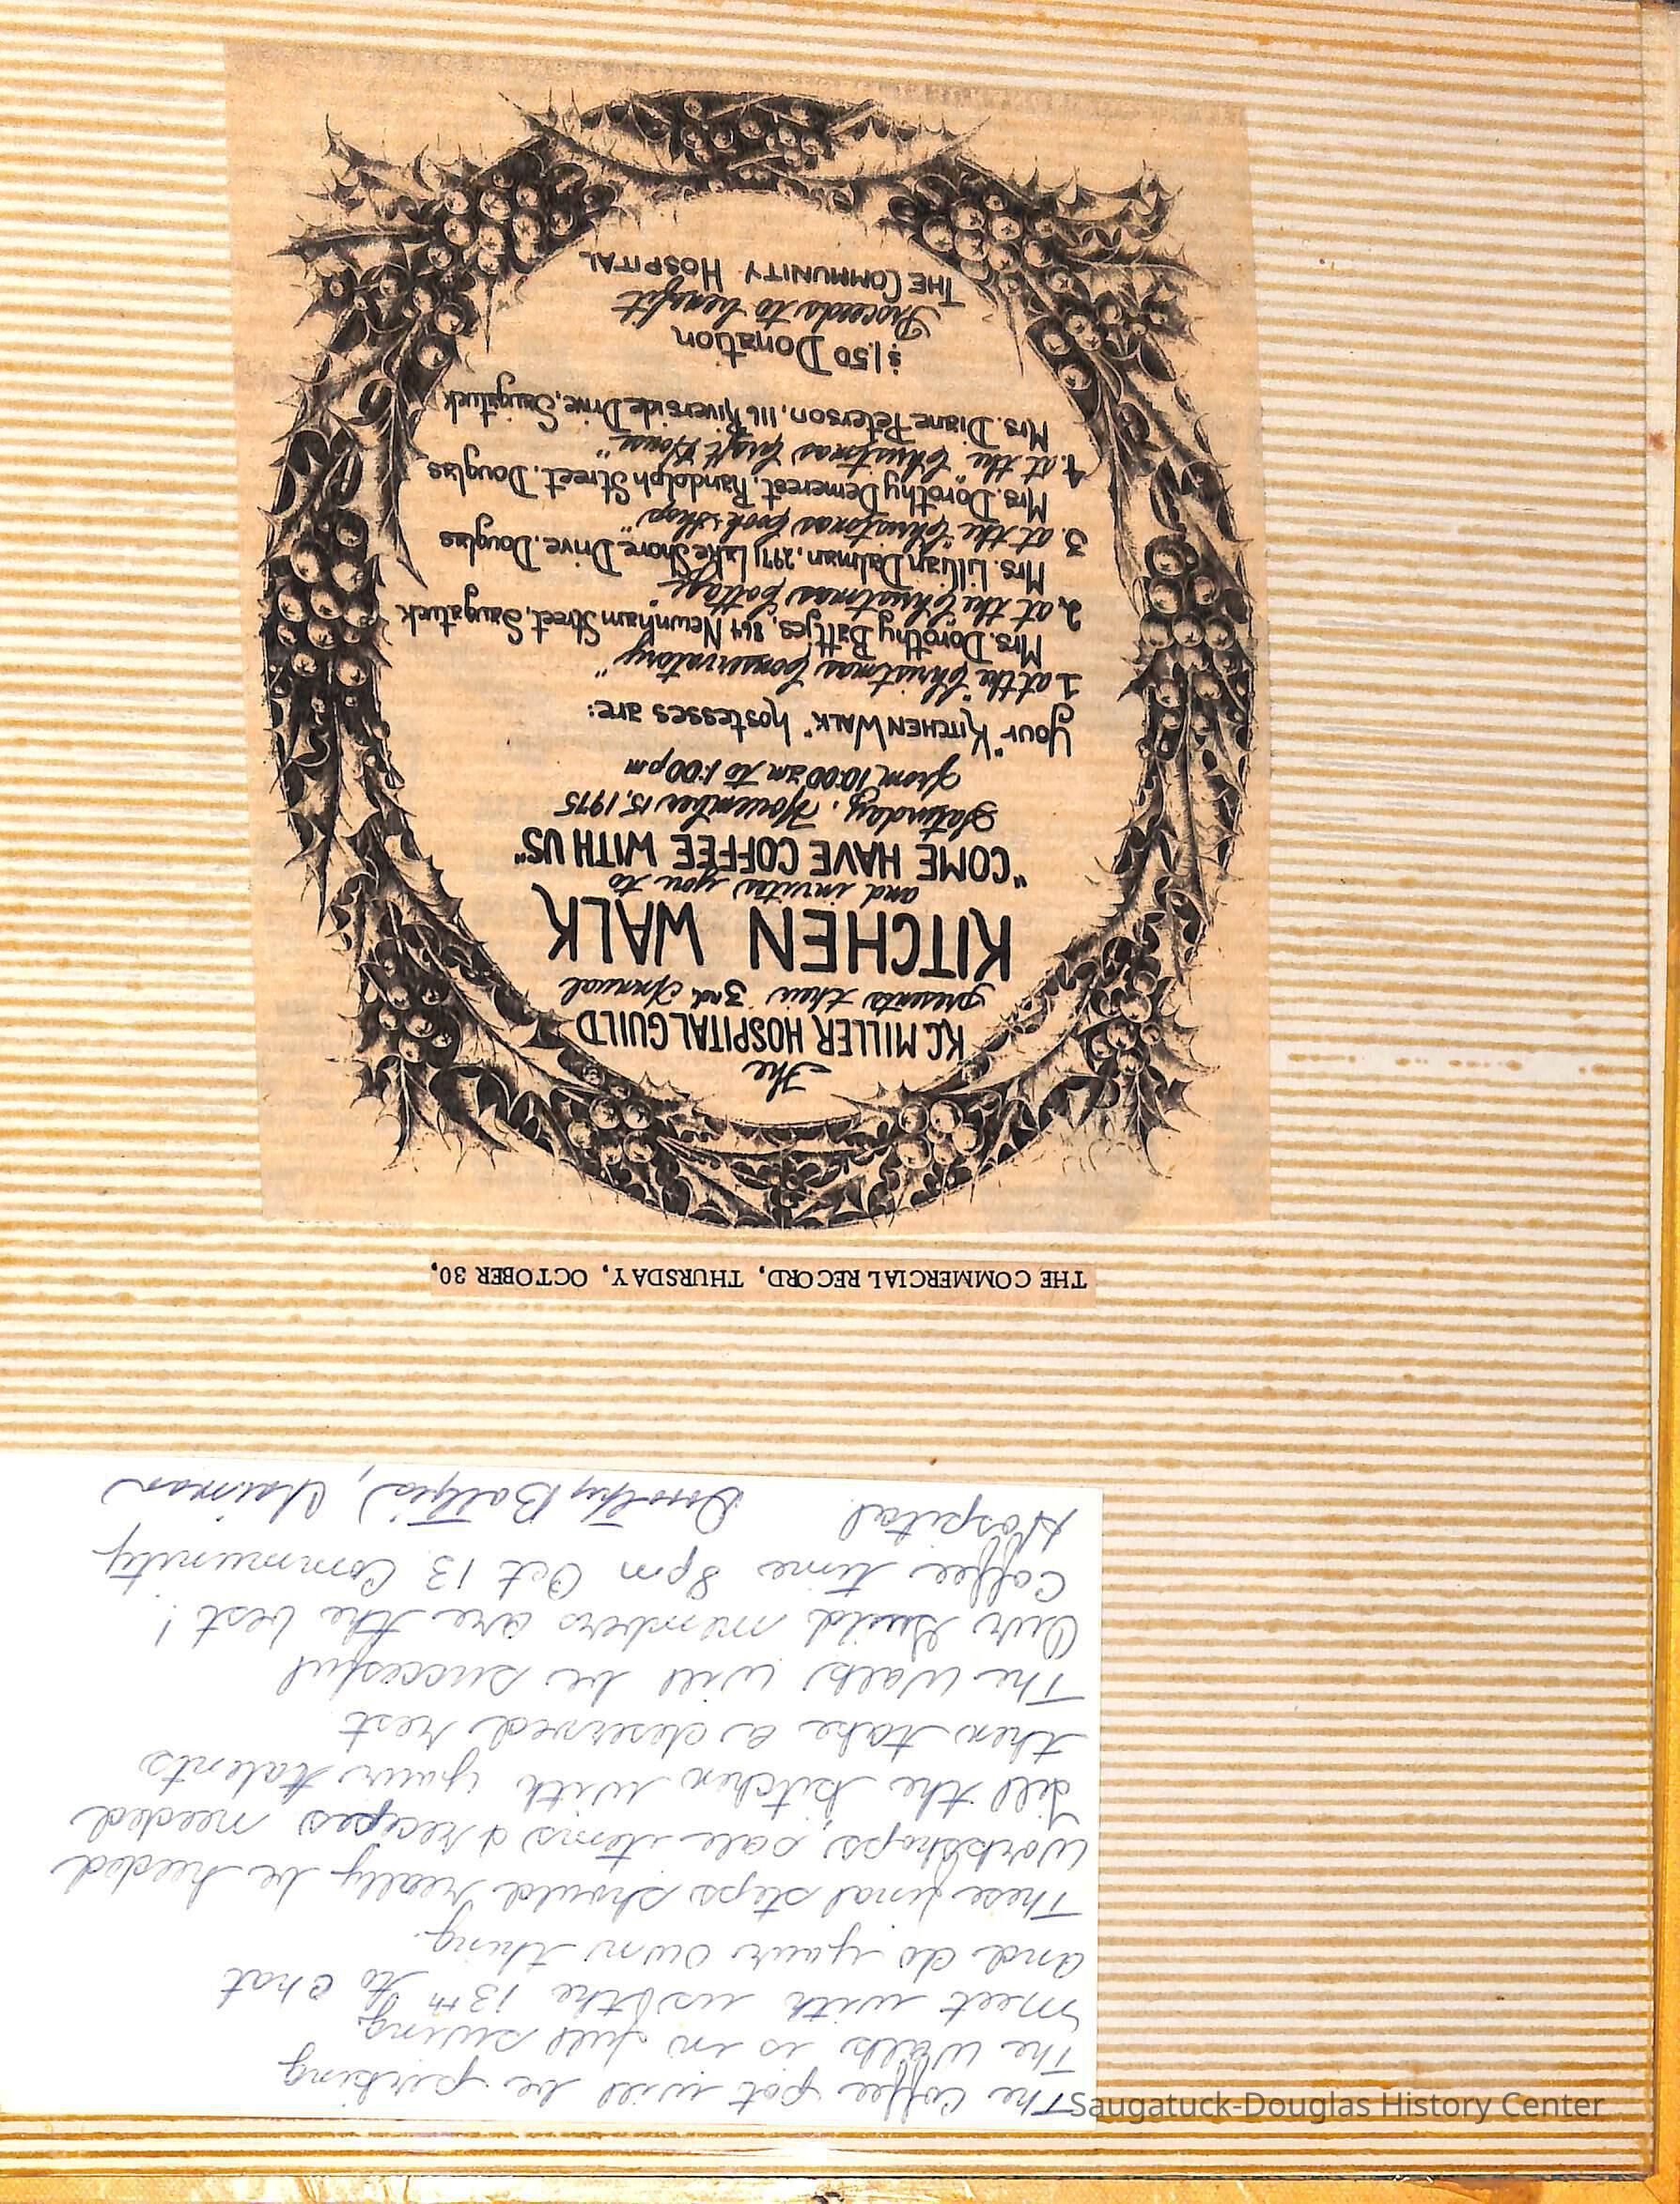 The Coffee pot will be perking
The Walk is in full swing
Meet with us the 13th to chat
and do your own thing.
These final steps should really be heeded
Workshops, sale items & recipes needed
Fill the kitchen with your talents
then take a deserved rest
The Walk will be succesful
Our Guild members are the best!
Coffee time 8pm Oct 13 Community
Hospital Dorothy Battjes, Chairman
THE COMMERCIAL RECORD, THURSDAY, OCTOBER 30,
The
K.C. MILLER HOSPITAL GUILD
presents their 3rd Annual
KITCHEN WALK
and invites you to
"COME HAVE COFFEE WITH US"
Saturday, November 15, 1975
from 10:00 am to 1:00 pm
Your "KITCHEN WALK" hostesses are:
1 at the "Christmas Conservatory"
Mrs. Dorothy Battjes, 864 Newnham Street, Saugatuck
2. at the "Christmas Cottage"
Mrs. Lillian Dalman, 2971 Lake Shore Drive, Douglas
3. at the "Christmas Book Shop"
Mrs. Dorothy Demerest, Randolph Street, Douglas
4. at the "Christmas Light House"
Mrs. Diane Peterson, 116 Riverside Drive, Saugatuck
$1.50 Donation
Proceeds to benefit
THE COMMUNITY HOSPITAL
Saugatuck-Douglas History Center